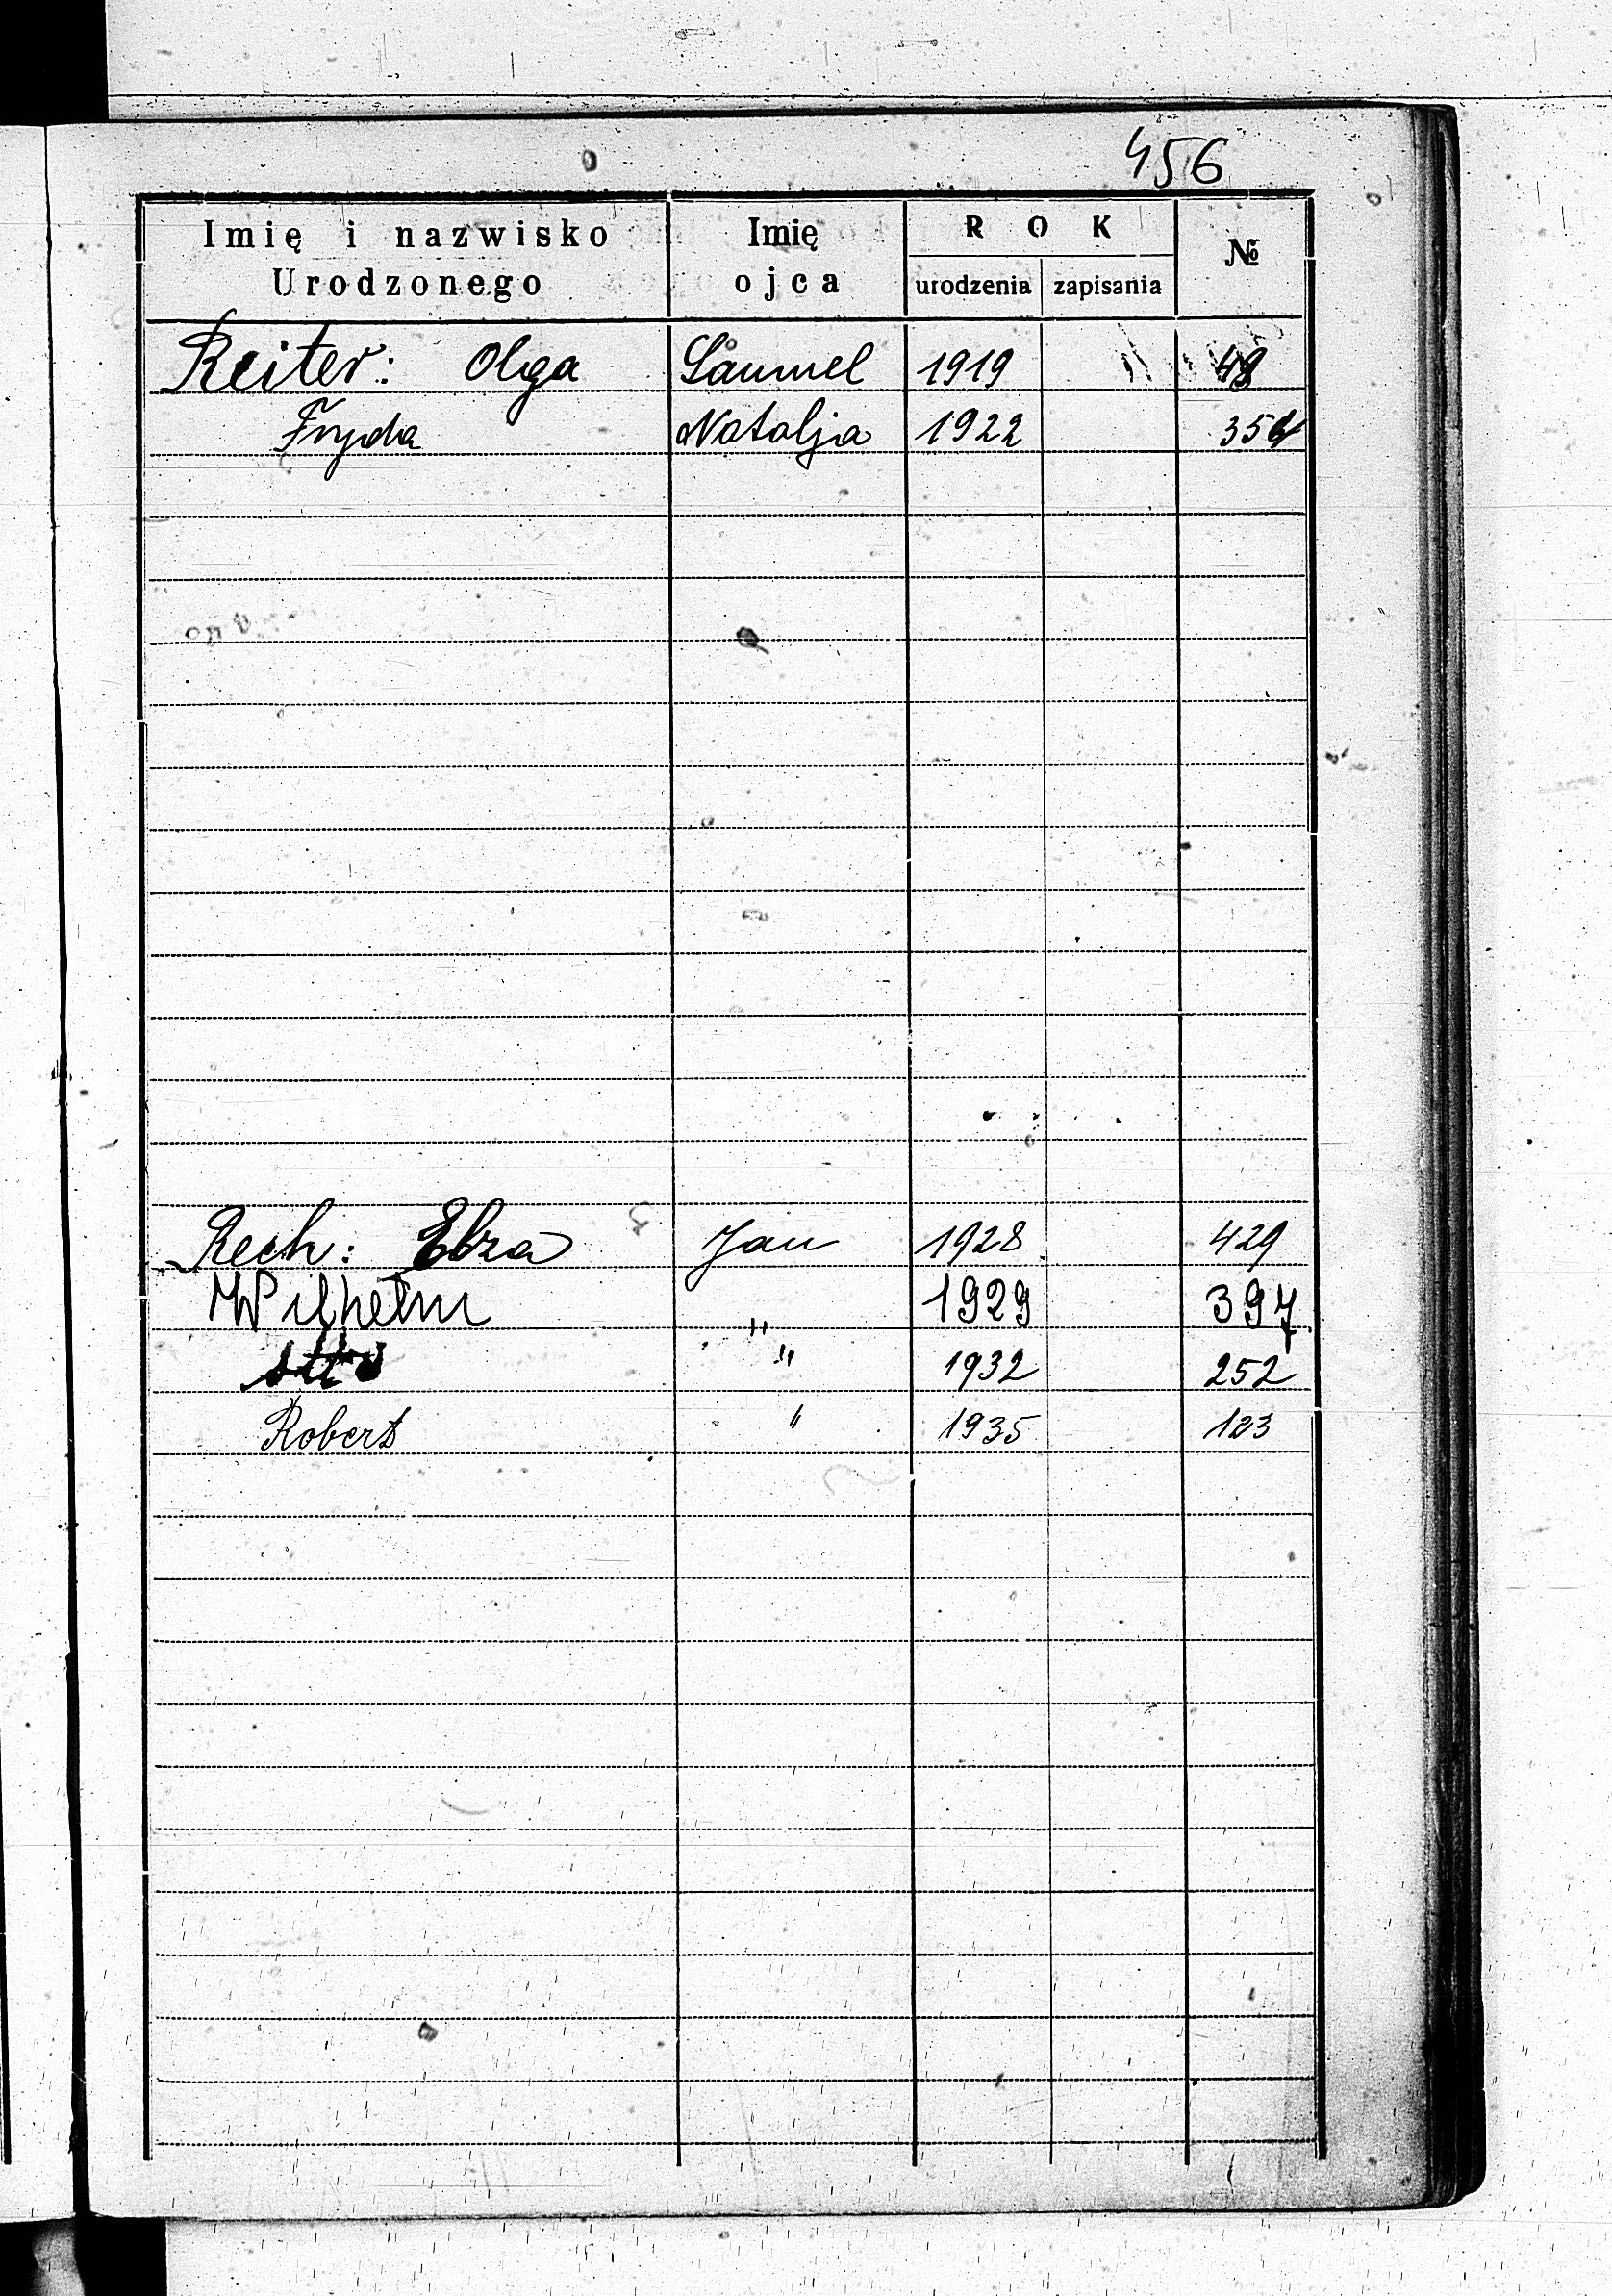 456
Imię i nazwisko Urodzonego Imię ojca ROK urodzenia zapisania №
Reiter: Olga Samuel 1919 48
Fryda Natalja 1922 354
Rech: Elza Jan 1928 429
Wilhelm " 1929 397
Otto " 1932 252
Robert " 1935 123